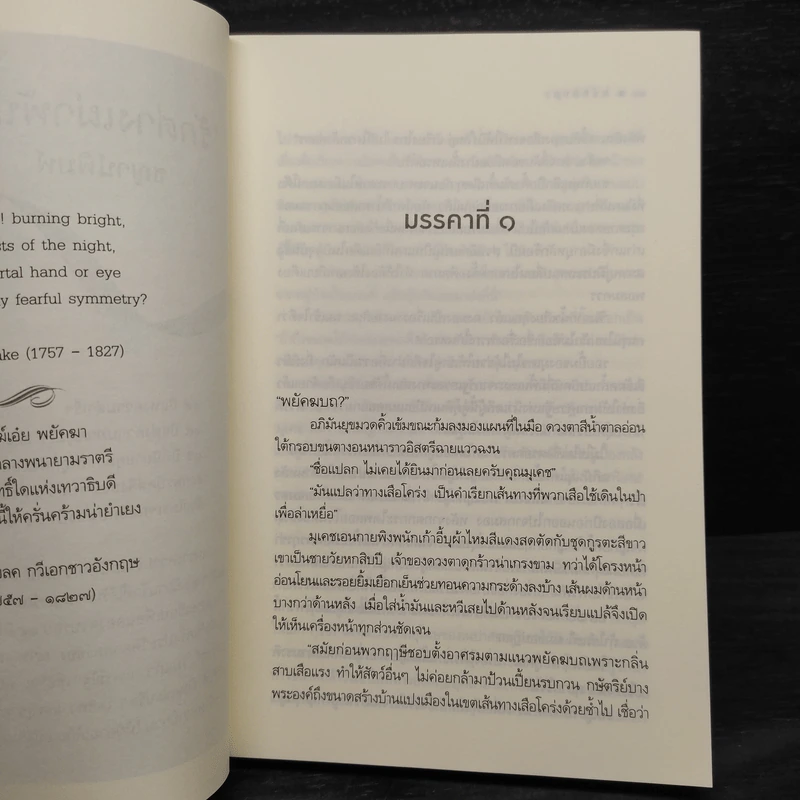 ! burning bright,
of the night,
hand or eye
fearful symmetry?
(1757 – 1827)
พยัคฆา
พนายามราตรี
แห่งเทวาธิบดี
ให้ครั่นคร้ามน่ายำเยง
กวีเอกชาวอังกฤษ
– ๑๘๒๗)
มรรคาที่ ๑
“พยัคฆบถ?”
อภิมันยุขมวดคิ้วเข้มขณะก้มลงมองแผนที่ในมือ ดวงตาสีน้ำตาลอ่อน
ใต้กรอบขนตางอนหนาราวอิสตรีฉายแววฉงน
“ชื่อแปลก ไม่เคยได้ยินมาก่อนเลยครับคุณมุเคช”
“มันแปลว่าทางเสือโคร่ง เป็นคำเรียกเส้นทางที่พวกเสือใช้เดินในป่า
เพื่อล่าเหยื่อ”
มุเคชเอนกายพิงพนักเก้าอี้บุผ้าไหมสีแดงสดตัดกับชุดกูรตะสีขาว
เขาเป็นชายวัยหกสิบปี เจ้าของดวงตาดุกร้าวน่าเกรงขาม ทว่าได้โครงหน้า
อ่อนโยนและรอยยิ้มเยือกเย็นช่วยทอนความกระด้างลงบ้าง เส้นผมด้านหน้า
บางกว่าด้านหลัง เมื่อใส่น้ำมันและหวีเสยไปด้านหลังจนเรียบแปล้จึงเปิด
ให้เห็นเครื่องหน้าทุกส่วนชัดเจน
“สมัยก่อนพวกฤๅษีชอบตั้งอาศรมตามแนวพยัคฆบถเพราะกลิ่น
สาบเสือแรง ทำให้สัตว์อื่นๆ ไม่ค่อยกล้ามาป้วนเปี้ยนรบกวน กษัตริย์บาง
พระองค์ถึงขนาดสร้างบ้านแปงเมืองในเขตเส้นทางเสือโคร่งด้วยซ้ำไป เชื่อว่า